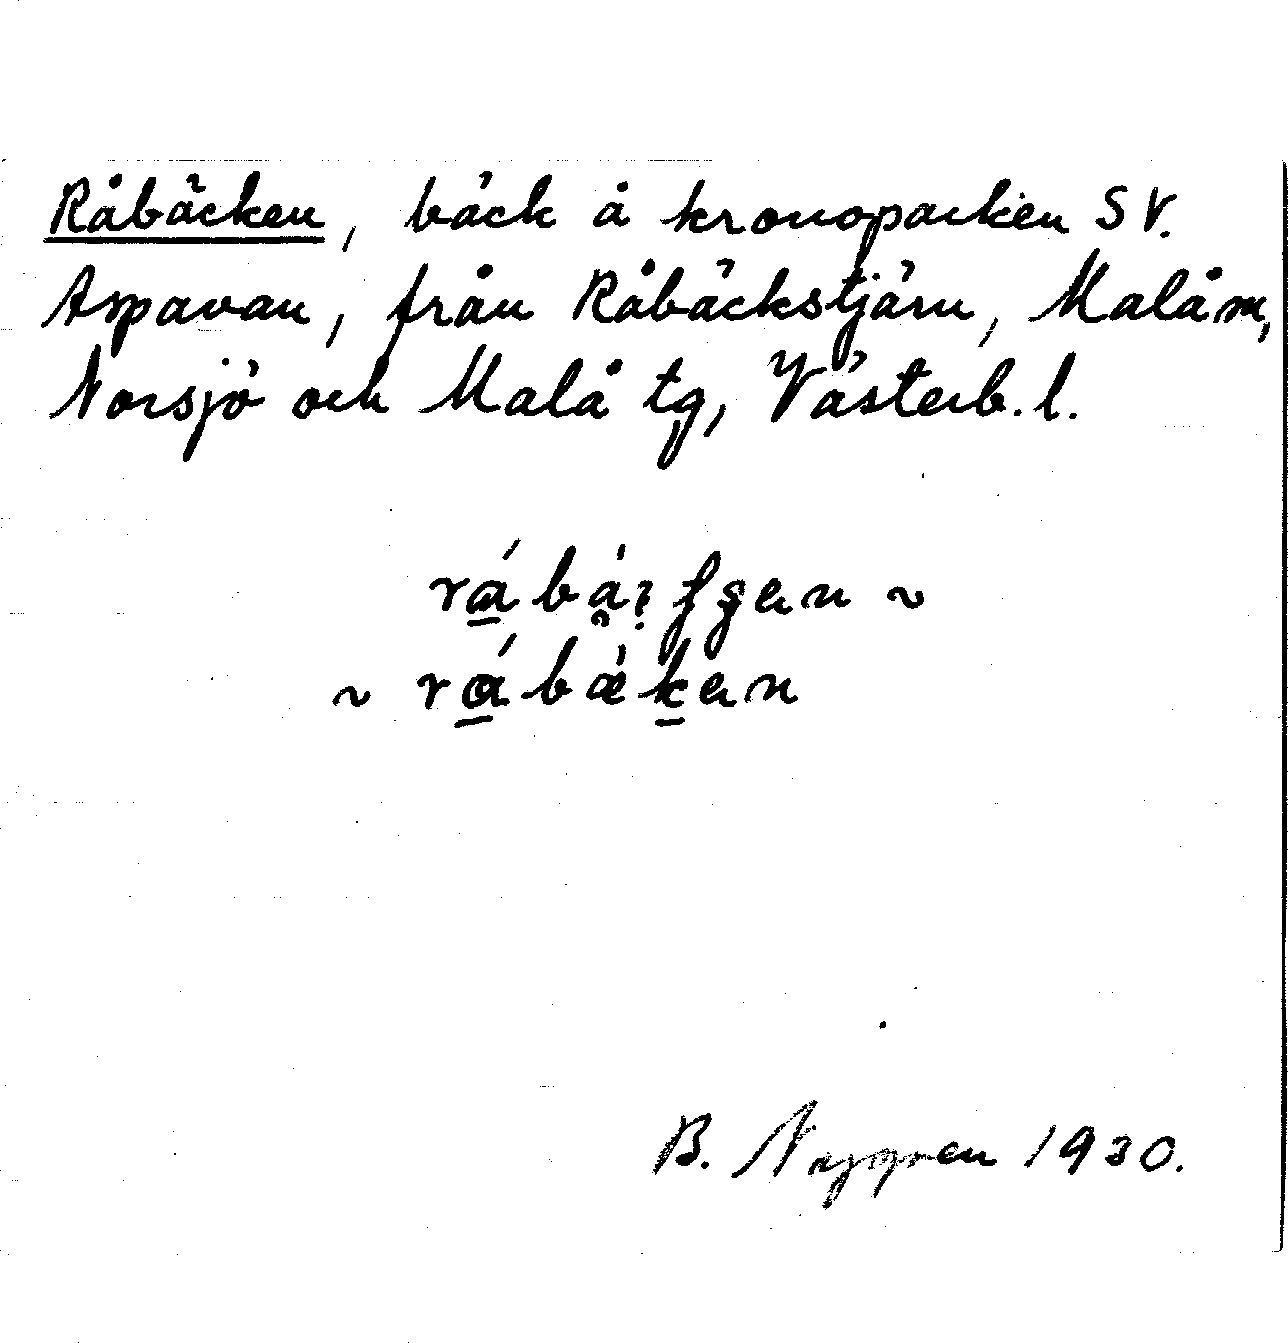 Råbäcken, bäck å kronoparken SV.
Aspavan, från Råbäckstjärn, Malå sn,
Norsjö och Malå tg, Västerb. l.
~
~ råbäken
B. Nygren 1930.